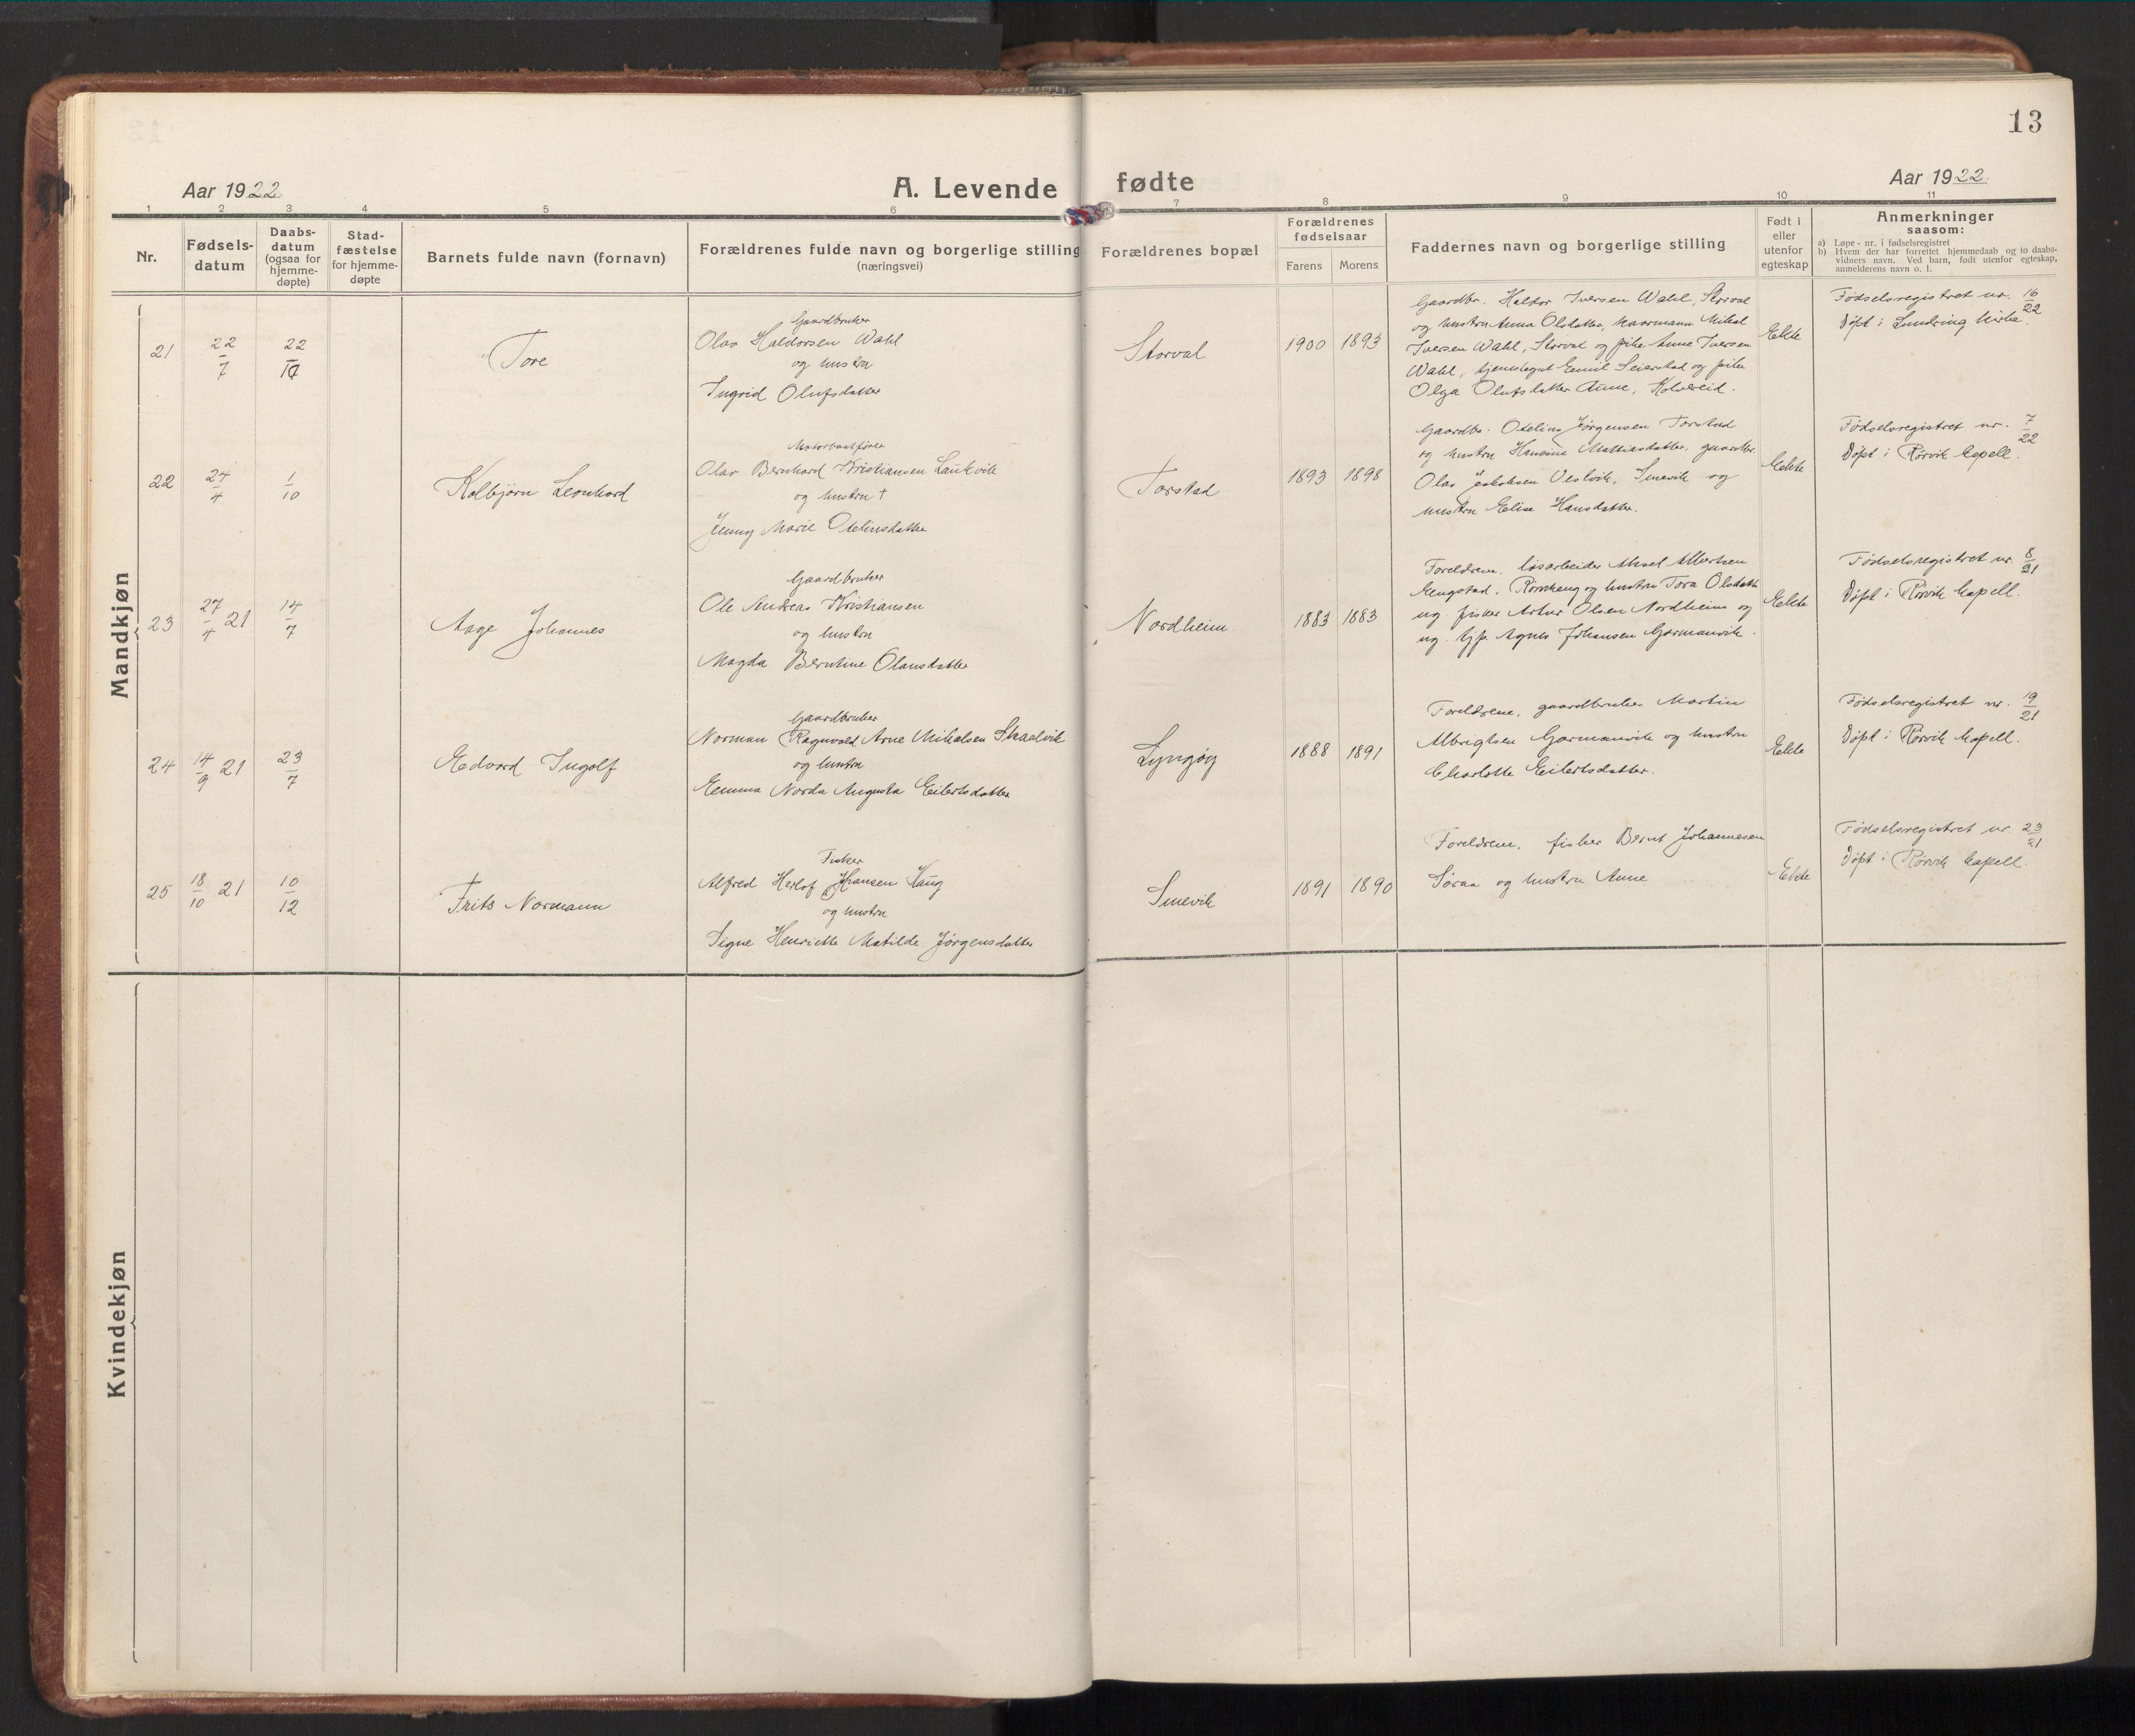 13
Aar 1922.
A. Levende fødte
Aar 1922.
1 2 3 4 5 6 7 8 9 10 11
Nr.
Fødsels-
datum
Daabs-
datum
(ogsaa for
hjemme-
døpte)
Stad-
fæstelse
for hjemme-
døpte
Barnets fulde navn (fornavn)
Forældrenes fulde navn og borgerlige stilling
(næringsvei)
Forældrenes bopæl
Forældrenes
fødselsaar
Farens Morens
Faddernes navn og borgerlige stilling
Født i
eller
utenfor
egteskap
Anmerkninger
saasom:
a) Løpe-nr. i fødselsregistret
b) Hvem der har forrettet hjemmedaab og to daabs-
vidners navn. Ved barn, født utenfor egteskap,
anmelderens navn o. l.
Mandkjøn
21
22/7
22/10
Tore
Gaardbruker
Olav Haldorsen Wahl
og hustru
Ingrid Olufsdatter
Storval
1900 1893
Gaardbr. Haldor Iversen Wahl, Storval
og hustru Anna Olsdatter, Mikal
Iversen Wahl, Storval og pike Anne Iversen
Wahl, tjenestegut Emil Seierstad og pike
Olga Olufsdatter Aune, Kolvereid.
Ekte
Fødselsregistret nr. 16/22
Døpt i Lundring kirke.
22
24/4
1/10
Kolbjørn Leonhard
Motorbaatfører
Olav Bernhard Kristiansen Laukvik
og hustru †
Jenny Marie Otelinsdatter
Torstad
1893 1898
Gaardbr. Otelius Jørgensen Torstad
og hustru Hansine Mathiasdatter, gaardbr.
Olav Jakobsen Vestvik, Smevik og
hustru Elise Hansdatter.
Ekte
Fødselsregistret nr. 7/22
Døpt i Rørvik kapell.
23
27/4 21
14/7
Aage Johannes
Gaardbruker
Ole Andreas Kristiansen
og hustru
Magda Berntine Olausdatter
Nordheim
1883 1883
Foreldrene, løsarbeider Aksel Albertsen
Engstad, og hustru Tora Olsdatter
ug. fisker Artur Olsen Nordheim og
ug. tjp. Agnes Johansen Garmannvik.
Ekte
Fødselsregistret nr. 8/21
Døpt i Rørvik kapell.
24
14/9 21
23/7
Edvard Ingolf
Gaardbruker
Norman Ragnvald Arne Mikalsen Skaalvik
og hustru
Emma Norda Augusta Eilertsdatter
Lyngøy
1888 1891
Foreldrene, gaardbruker Martin
Albrigtsen Garmannvik og hustru
Charlotte Eilertsdatter.
Ekte
Fødselsregistret nr. 19/21
Døpt i Rørvik kapell.
25
18/10 21
10/12
Frits Normann
Fisker
Alfred Herlof Hansen Haug
og hustru
Signe Henriette Matilde Jørgensdatter
Smevik
1891 1890
Foreldrene, fisker Bernt Johannesen
Søraa og hustru Anne
Ekte
Fødselsregistret nr. 23/21
Døpt i Rørvik kapell.
Kvindekjøn